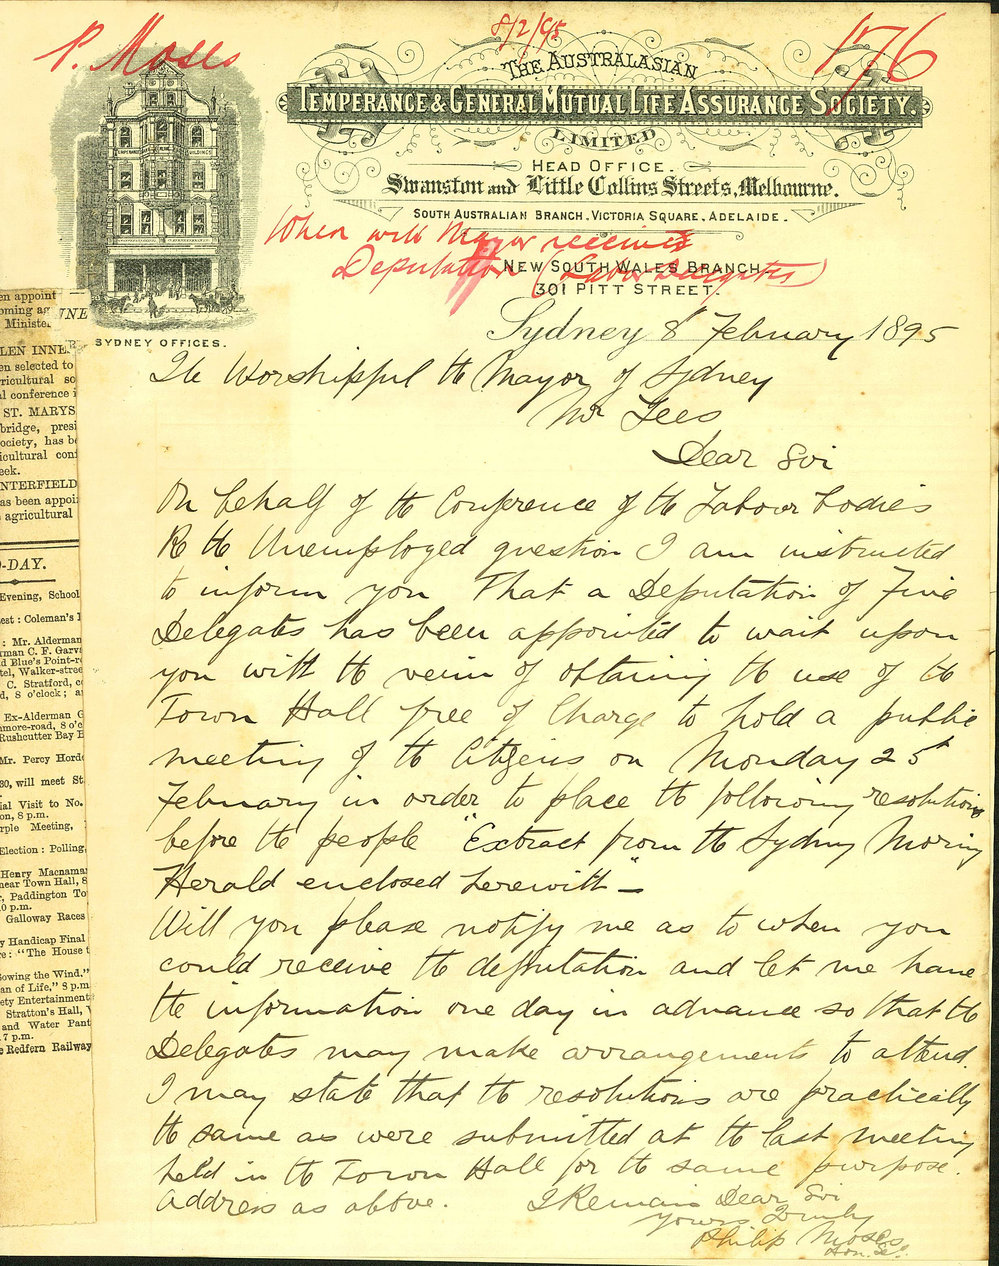 P. Moses
8/2/95
176
THE AUSTRALASIAN
TEMPERANCE & GENERAL MUTUAL LIFE ASSURANCE SOCIETY.
LIMITED
HEAD OFFICE.
Swanston and Little Collins Streets, Melbourne.
SOUTH AUSTRALIAN BRANCH. VICTORIA SQUARE, ADELAIDE.
When will Mayor receive
Deputation (Labor Delegates)
NEW SOUTH WALES BRANCH
301 PITT STREET.
TEMPERANCE
BUILDINGS
SYDNEY OFFICES.
Sydney 8 February 1895
The Worshipful the Mayor of Sydney
Mr Lees
Dear Sir
On behalf of the Conference of the Labour bodies
Re the Unemployed question I am instructed
to inform you That a Deputation of Five
Delegates has been appointed to wait upon
you with the veiw of obtaining the use of the
Town Hall free of Charge to hold a public
meeting of the Citizens on Monday 25th
February in order to place the following resolutions
before the people "Extract from the Sydney Morning
Herald enclosed herewith" —
Will you please notify me as to when you
could receive the deputation and let me have
the information one day in advance so that the
Delegates may make arrangements to attend.
I may state that the resolutions are practically
the same as were submitted at the last meeting
held in the Town Hall for the same purpose.
Address as above. I Remain Dear Sir
Yours Truly
Philip Moses
Hon. Sec.
en appoint
oming ag
Ministe
LEN INNE
en selected to
ricultural so
l conference i
ST. MARYS
bridge, presi
ociety, has be
icultural con
eek.
NTERFIELD
as been appoi
agricultural
-DAY.
Evening, School
est: Coleman's
: Mr. Alderman
rman C. F. Garv
d Blue's Point-r
tel, Walker-stree
C. Stratford, c
d, 8 o'clock; a
Ex-Alderman G
nmore-road, 8 o'c
Rushcutter Bay
Mr. Percy Hord
30, will meet St
ial Visit to No.
on, 8 p.m.
rple Meeting,
Election: Polling,
Henry Macnama
near Town Hall, 8
, Paddington To
0 p.m.
Galloway Races
y Handicap Final
re: "The House t
Sowing the Wind."
an of Life," 8 p.m
ety Entertainment
Stratton's Hall,
and Water Pant
7 p.m.
e Redfern Railway